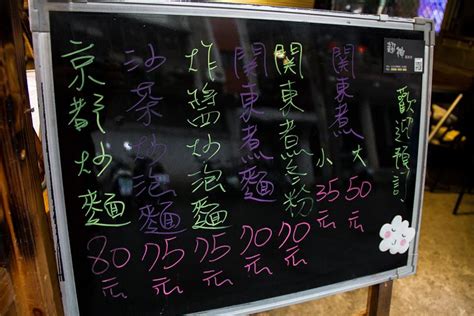 歡迎預訂
關東煮
大 50元
小 35元
關東煮冬粉 70元
關東煮麵 70元
炸醬炒泡麵 75元
沙茶炒泡麵 75元
京都炒麵 80元